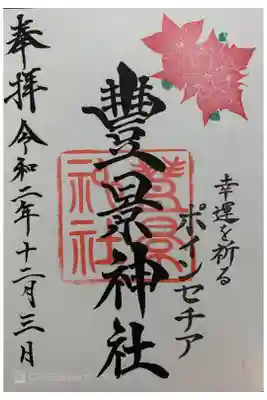 幸運を祈る
ポインセチア
豊景神社
奉拝 令和二年十二月三日